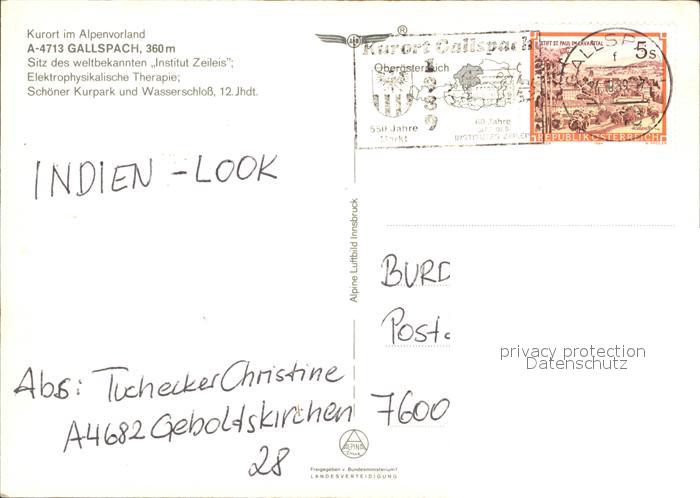 Kurort im Alpenvorland
A-4713 GALLSPACH, 360 m
Sitz des weltbekannten „Institut Zeileis";
Elektrophysikalische Therapie;
Schöner Kurpark und Wasserschloß, 12. Jhdt.
®
Kurort Gallspach
Oberösterreich
1989
550 Jahre
Markt
60 Jahre
INSTITUTES ZEILEIS
STIFT ST. PAUL IM LAVANTTAL
5s
REPUBLIK ÖSTERREICH
GALLSPA
INDIEN - LOOK
Alpine Luftbild Innsbruck
BURD
Post
7600
privacy protection
Datenschutz
Abs: Tuchecker Christine
A4682 Geboltskirchen
28
ALPINA
Freigegeben v. Bundesministerium f.
LANDESVERTEIDIGUNG